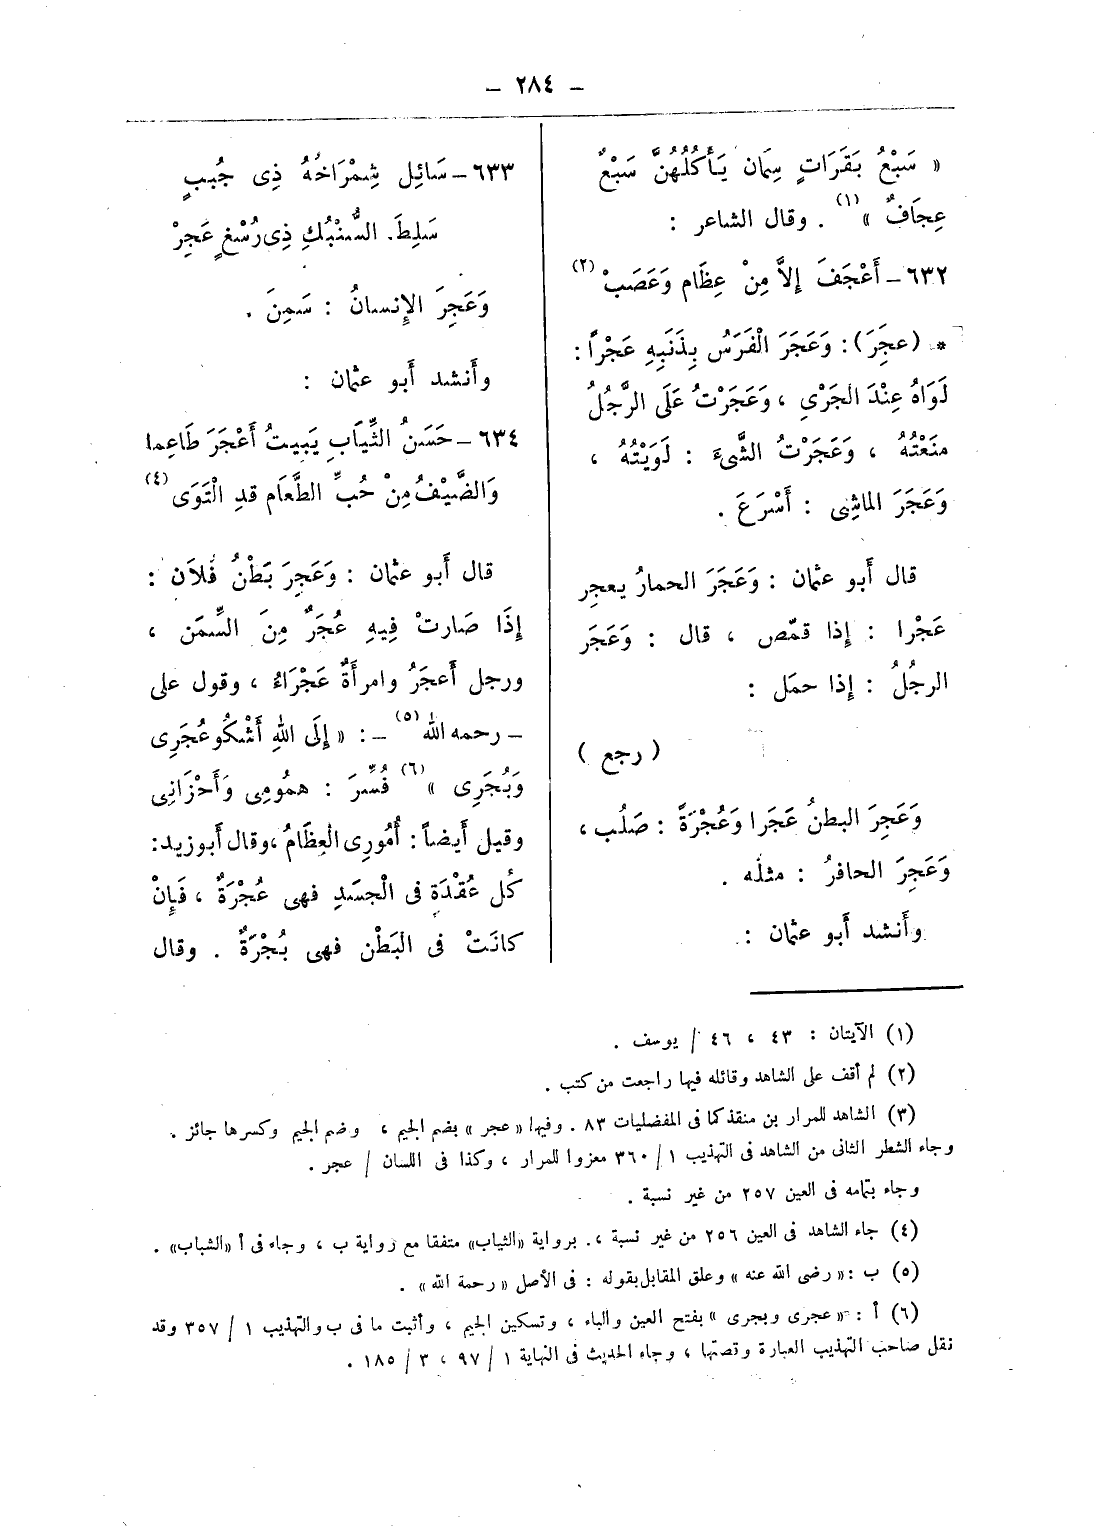 – ٢٨٤ –
« سَبْعُ بَقَرَاتٍ سِمَان يَأْكُلُهُنَّ سَبْعٌ
عِجَافٌ » (١) . وقال الشاعر :
٦٣٢ – أَعْجَفَ إِلاَّ مِنْ عِظَام وَعَصَبْ (٢)
* (عجَِرَ) : وَعَجَرَ الْفَرَسُ بِذَنَبِهِ عَجْراً :
لَوَاهُ عِنْدَ الجَرْىِ ، وَعَجَرْتُ عَلَى الرَّجُلُ
مَنَعْتُهُ ، وَعَجَرْتُ الشَّىءَ : لَوَيْتُهُ ،
وَعَجَرَ الماشِى : أَسْرَعَ .
قال أَبو عثمان : وَعَجَرَ الحمارُ يعجِر
عَجْرا : إِذا قمّص ، قال : وَعَجَر
الرجُلُ : إِذا حمَل :
( رجع )
وَعَجِرَ البطنُ عَجَرا وَعُجْرَةً : صَلُب ،
وَعَجِرَ الحافرُ : مثلُه .
وأَنشد أَبو عثمان :
٦٣٣ – سَائِل شِمْرَاخُهُ ذِى جُبَبٍ
سَلِطَ السُّنْبُكِ ذِى رُسْغٍ عَجِرْ
وَعَجِرَ الإِنسانُ : سَمِنَ .
وأَنشد أَبو عثمان :
٦٣٤ – حَسَنُ الثِّيَابِ يَبِيتُ أَعْجَرَ طَاعِما
وَالضَّيْفُ مِنْ حُبِّ الطَّعَام قدِ الْتَوَى (٤)
قال أَبو عثمان : وَعَجِرَ بَطْنُ فُلاَن :
إِذَا صَارتْ فِيهِ عُجَرٌ مِنَ السِّمَن ،
ورجل أَعجَرُ وامرأَةٌ عَجْرَاءُ ، وقول على
– رحمه الله (٥) – : « إِلَى اللهِ أَشْكُو عُجَرِى
وَبُجَرِى » (٦) فُسِّرَ : همُومِى وَأَحْزَانِى
وقيل أَيضاً : أُمُورِى الْعِظَامُ ، وقال أَبو زيد :
كُل عُقْدَةٍ فى الْجسَدِ فهى عُجْرَةٌ ، فَإِنْ
كانَتْ فى البَطْن فهى بُجْرَةٌ . وقال
(١) الآيتان : ٤٣ ، ٤٦ / يوسف .
(٢) لم أقف على الشاهد وقائله فيما راجعت من كتب .
(٣) الشاهد للمرار بن منقذ كما فى المفضليات ٨٣ . وفيها « عجر » بضم الجيم ، وضم الجيم وكسرها جائز .
وجاء الشطر الثانى من الشاهد فى التهذيب ١ / ٣٦٠ معزوا للمرار ، وكذا فى اللسان / عجر .
وجاء بتمامه فى العين ٢٥٧ من غير نسبة .
(٤) جاء الشاهد فى العين ٢٥٦ من غير نسبة ، برواية «الثياب» متفقا مع رواية ب ، وجاء فى أ «الشباب» .
(٥) ب : « رضى الله عنه » وعلق المقابل بقوله : فى الأصل « رحمة الله » .
(٦) أ : « عجرى وبجرى » بفتح العين والباء ، وتسكين الجيم ، وأثبت ما فى ب والتهذيب ١ / ٣٥٧ وقد
نقل صاحب التهذيب العبارة وتصتها ، وجاء الحديث فى النهاية ١ / ٩٧ ، ٣ / ١٨٥ .